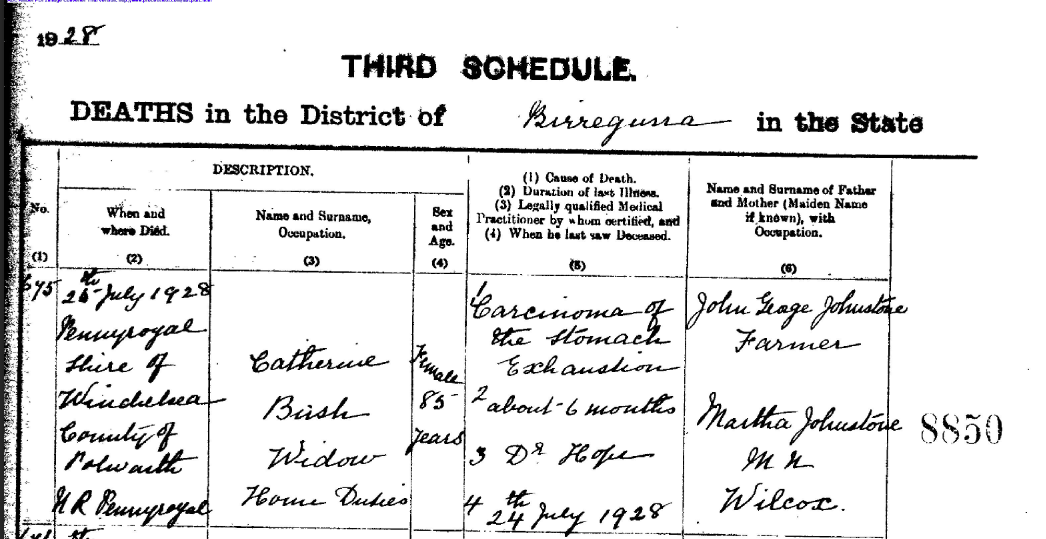 1928
THIRD SCHEDULE.
DEATHS in the District of Birregurra in the State
DESCRIPTION.
No.
(1)
When and
where Died.
(2)
Name and Surname,
Occupation.
(3)
Sex
and
Age.
(4)
(1) Cause of Death.
(2) Duration of last Illness.
(3) Legally qualified Medical
Practitioner by whom certified, and
(4) When he last saw Deceased.
(5)
Name and Surname of Father
and Mother (Maiden Name
if known), with
Occupation.
(6)
675
July 1928
Pennyroyal
Shire of
Winchelsea
County of
Polwarth
N R Pennyroyal
Catherine
Bush
Widow
Home Duties
Female
85
years
1 Carcinoma of
the Stomach
Exhaustion
2 about 6 months
3 Dr Hope
4 24th July 1928
John George Johnstone
Farmer
Martha Johnstone
M N
Wilcox.
8850